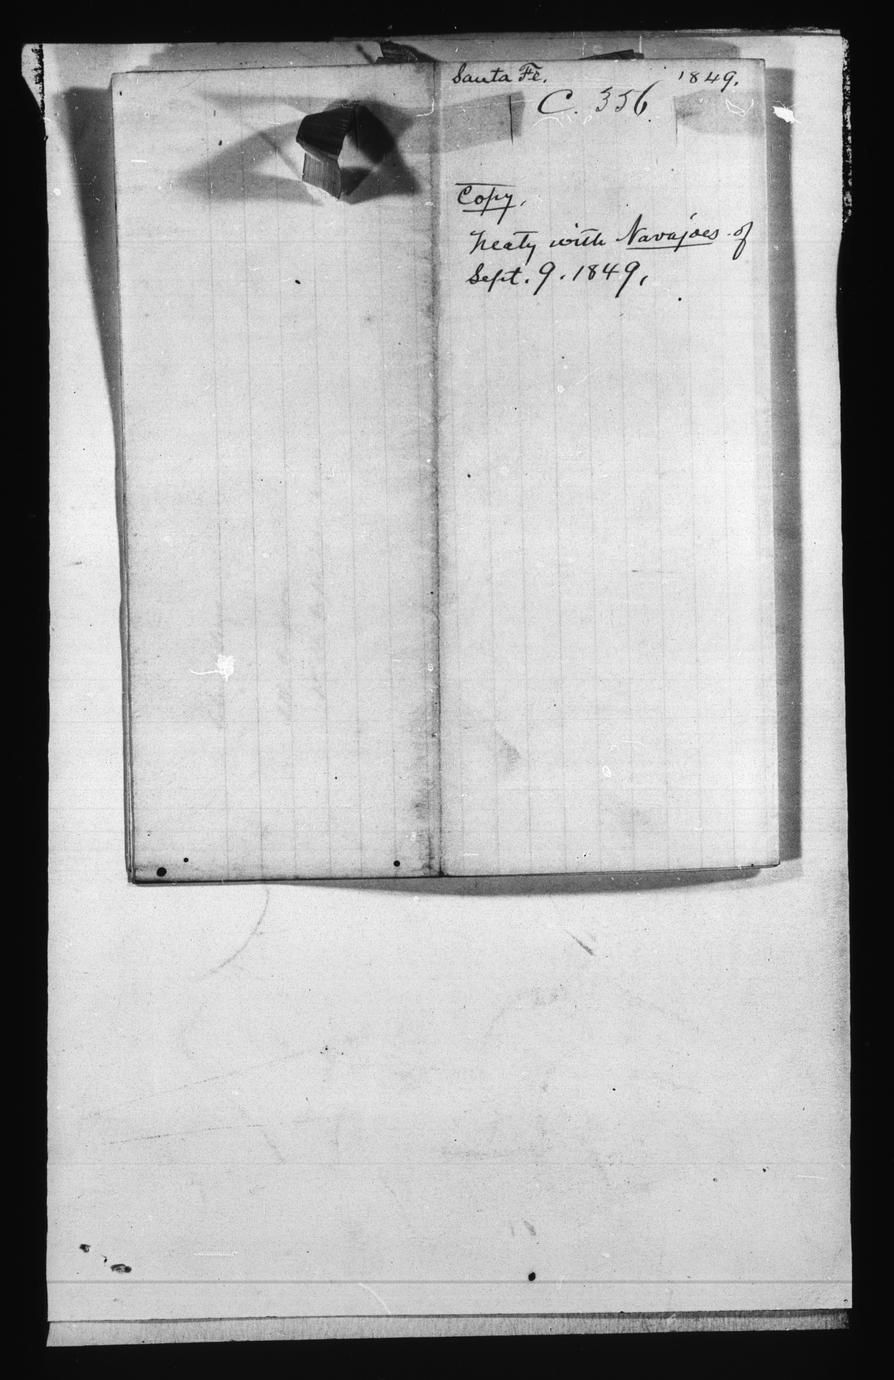 Santa Fe. 1849.
C. 356.
Copy.
Treaty with Navajoes of
Sept. 9. 1849.